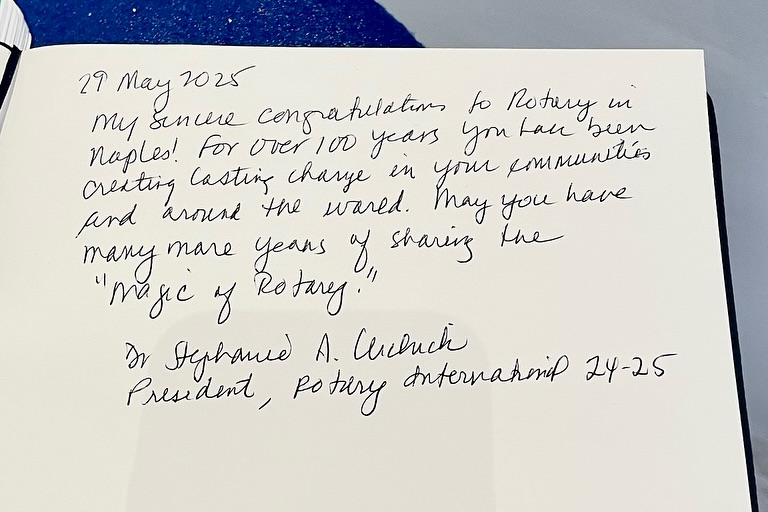 29 May 2025
My sincere congratulations to Rotary in
Naples! For over 100 years you have been
creating lasting change in your communities
and around the world. May you have
many more years of sharing the
"Magic of Rotary."
Dr Stephanie A. Urchick
President, Rotary International 24-25